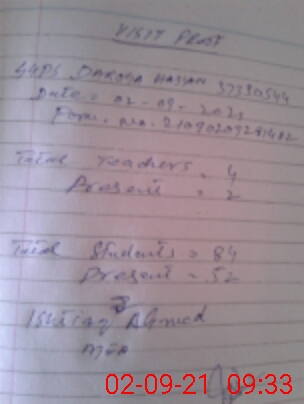 VISIT PROOF
GGPS DAROGA HASSAN 37330544
Date = 02-09-2021
Form. no.
Total Teachers = 4
Present = 2
Total Students = 84
Present = 52
Ishtiaq Ahmed
MEA
02-09-21 09:33